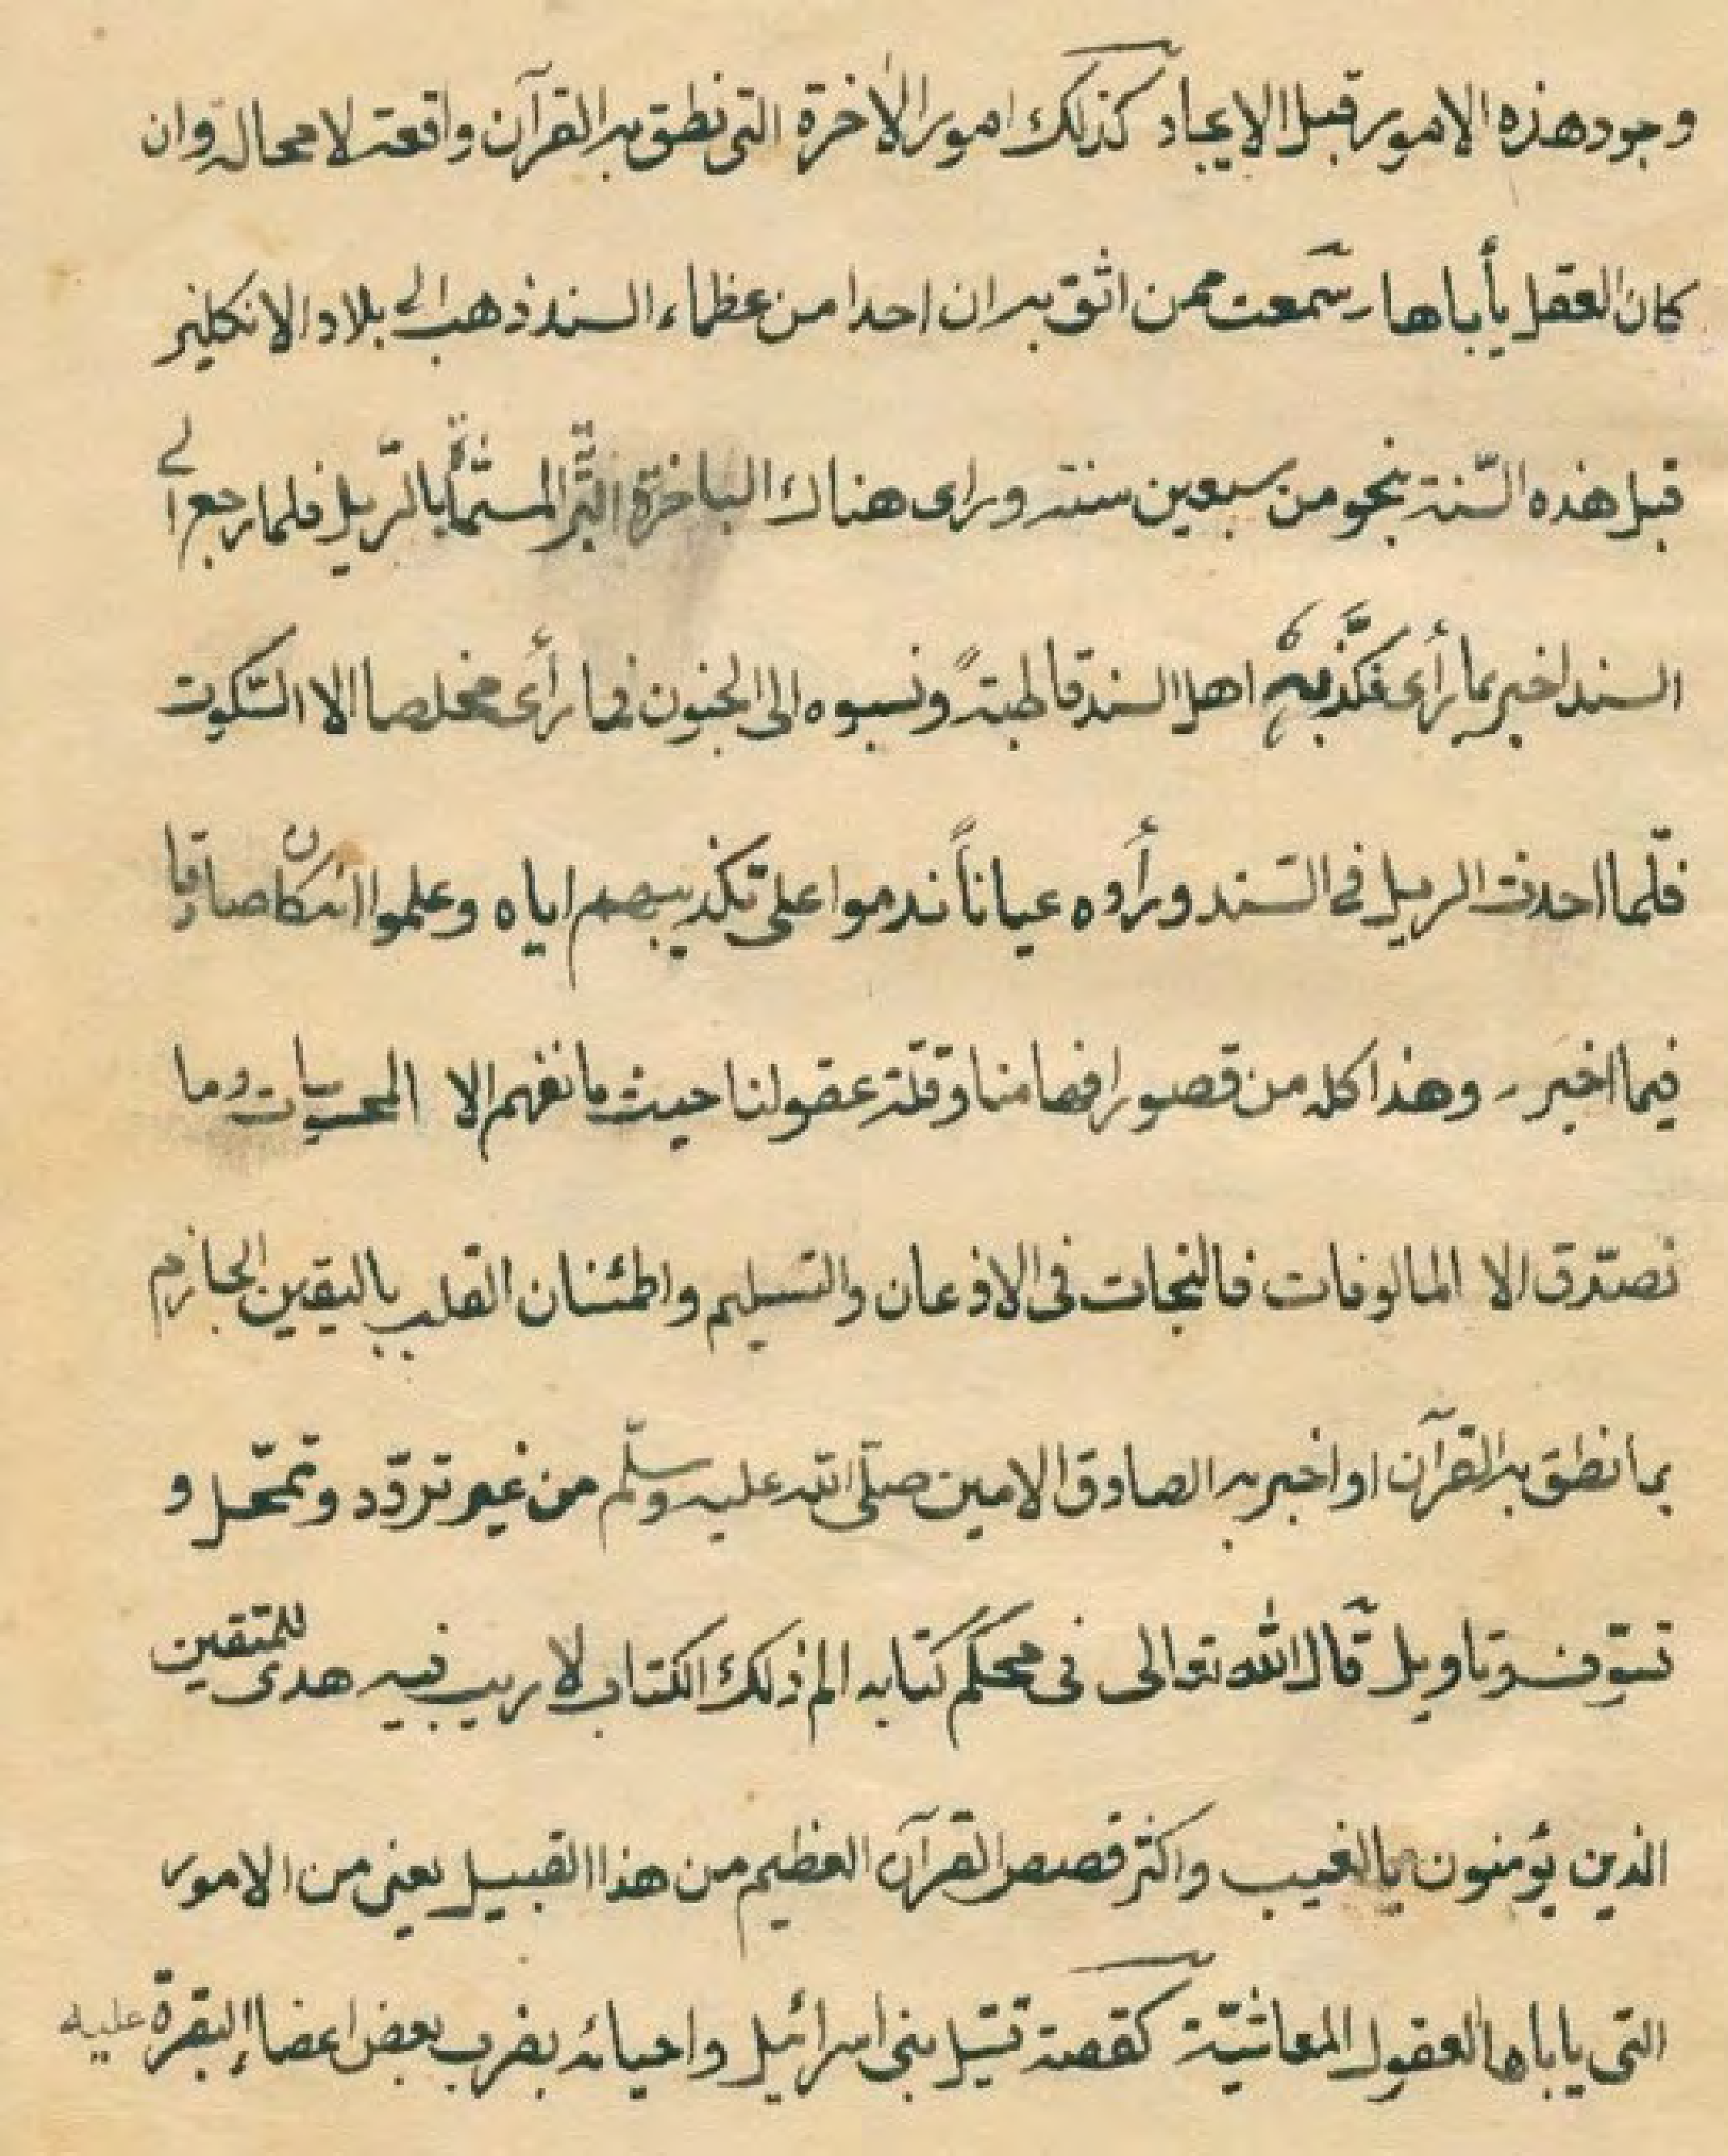 وجود هذه الامور قبل الايجاد كذلك امور الاخرة التى نطق به القرآن واقعة لا محالة وان
كان العقل يأباها سمعت ممن اثق به ان احدا من عظماء السند ذهب الى بلاد الانكليز
قبل هذه السّنة بنحو من سبعين سنة وراى هناك الباخرة البّرّيّة المسمّاة بالرّيل فلما رجع الى
السند اخبر بما رأى فكذّبه اهل السند قاطبةً ونسبوه الى الجنون فما رأى مخلصا الا السّكوت
فلّما احدث الريل فى السّند ورأوه عياناً ندموا على تكذيبهم اياه وعلموا انه كان صادقا
فيما اخبر وهذا كله من قصور افهامنا وقلّة عقولنا حيث ما نفهم الا المحسيات وما
نصدّق الا المالوفات فالنجات فى الاذعان والتسليم واطمئنان القلب باليقين الجازم
بما نطق به القرآن او اخبر به الصادق الامين صلّى الله عليه وسلّم من غير تردّد وتمحّل و
تسّوف وتاويل قال الله تعالى فى محكم كتابه الم ذلك الكتاب لا ريب فيه هدى للمتقين
الذين يؤمنون بالغيب واكثر قصص القرآن العظيم من هذا القبيل يعنى من الامور
التى ياباها العقول المعاشيّة كقصة قتيل بنى اسرائيل واحيائه بضرب بعض اعضاء البقرة عليه